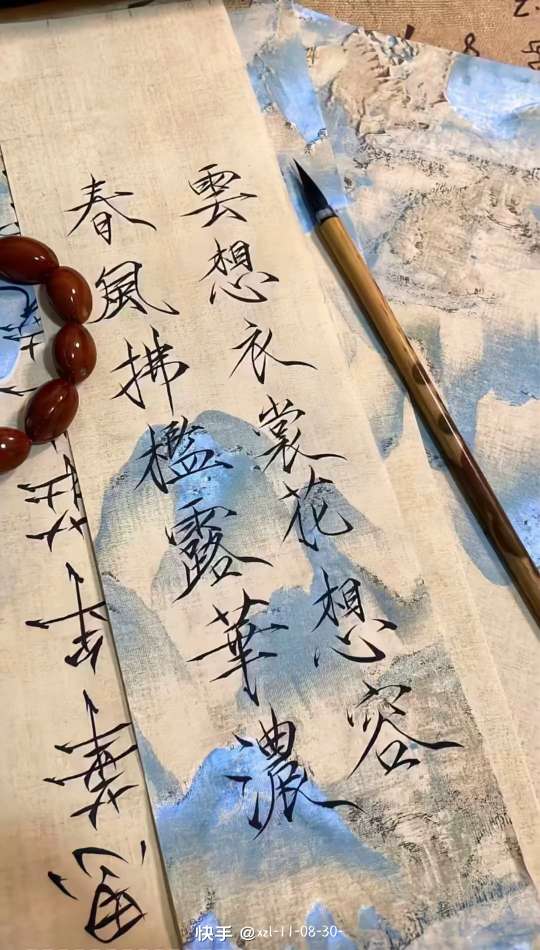 雲想衣裳花想容
春風拂檻露華濃
快手 @xzl-11-08-30-